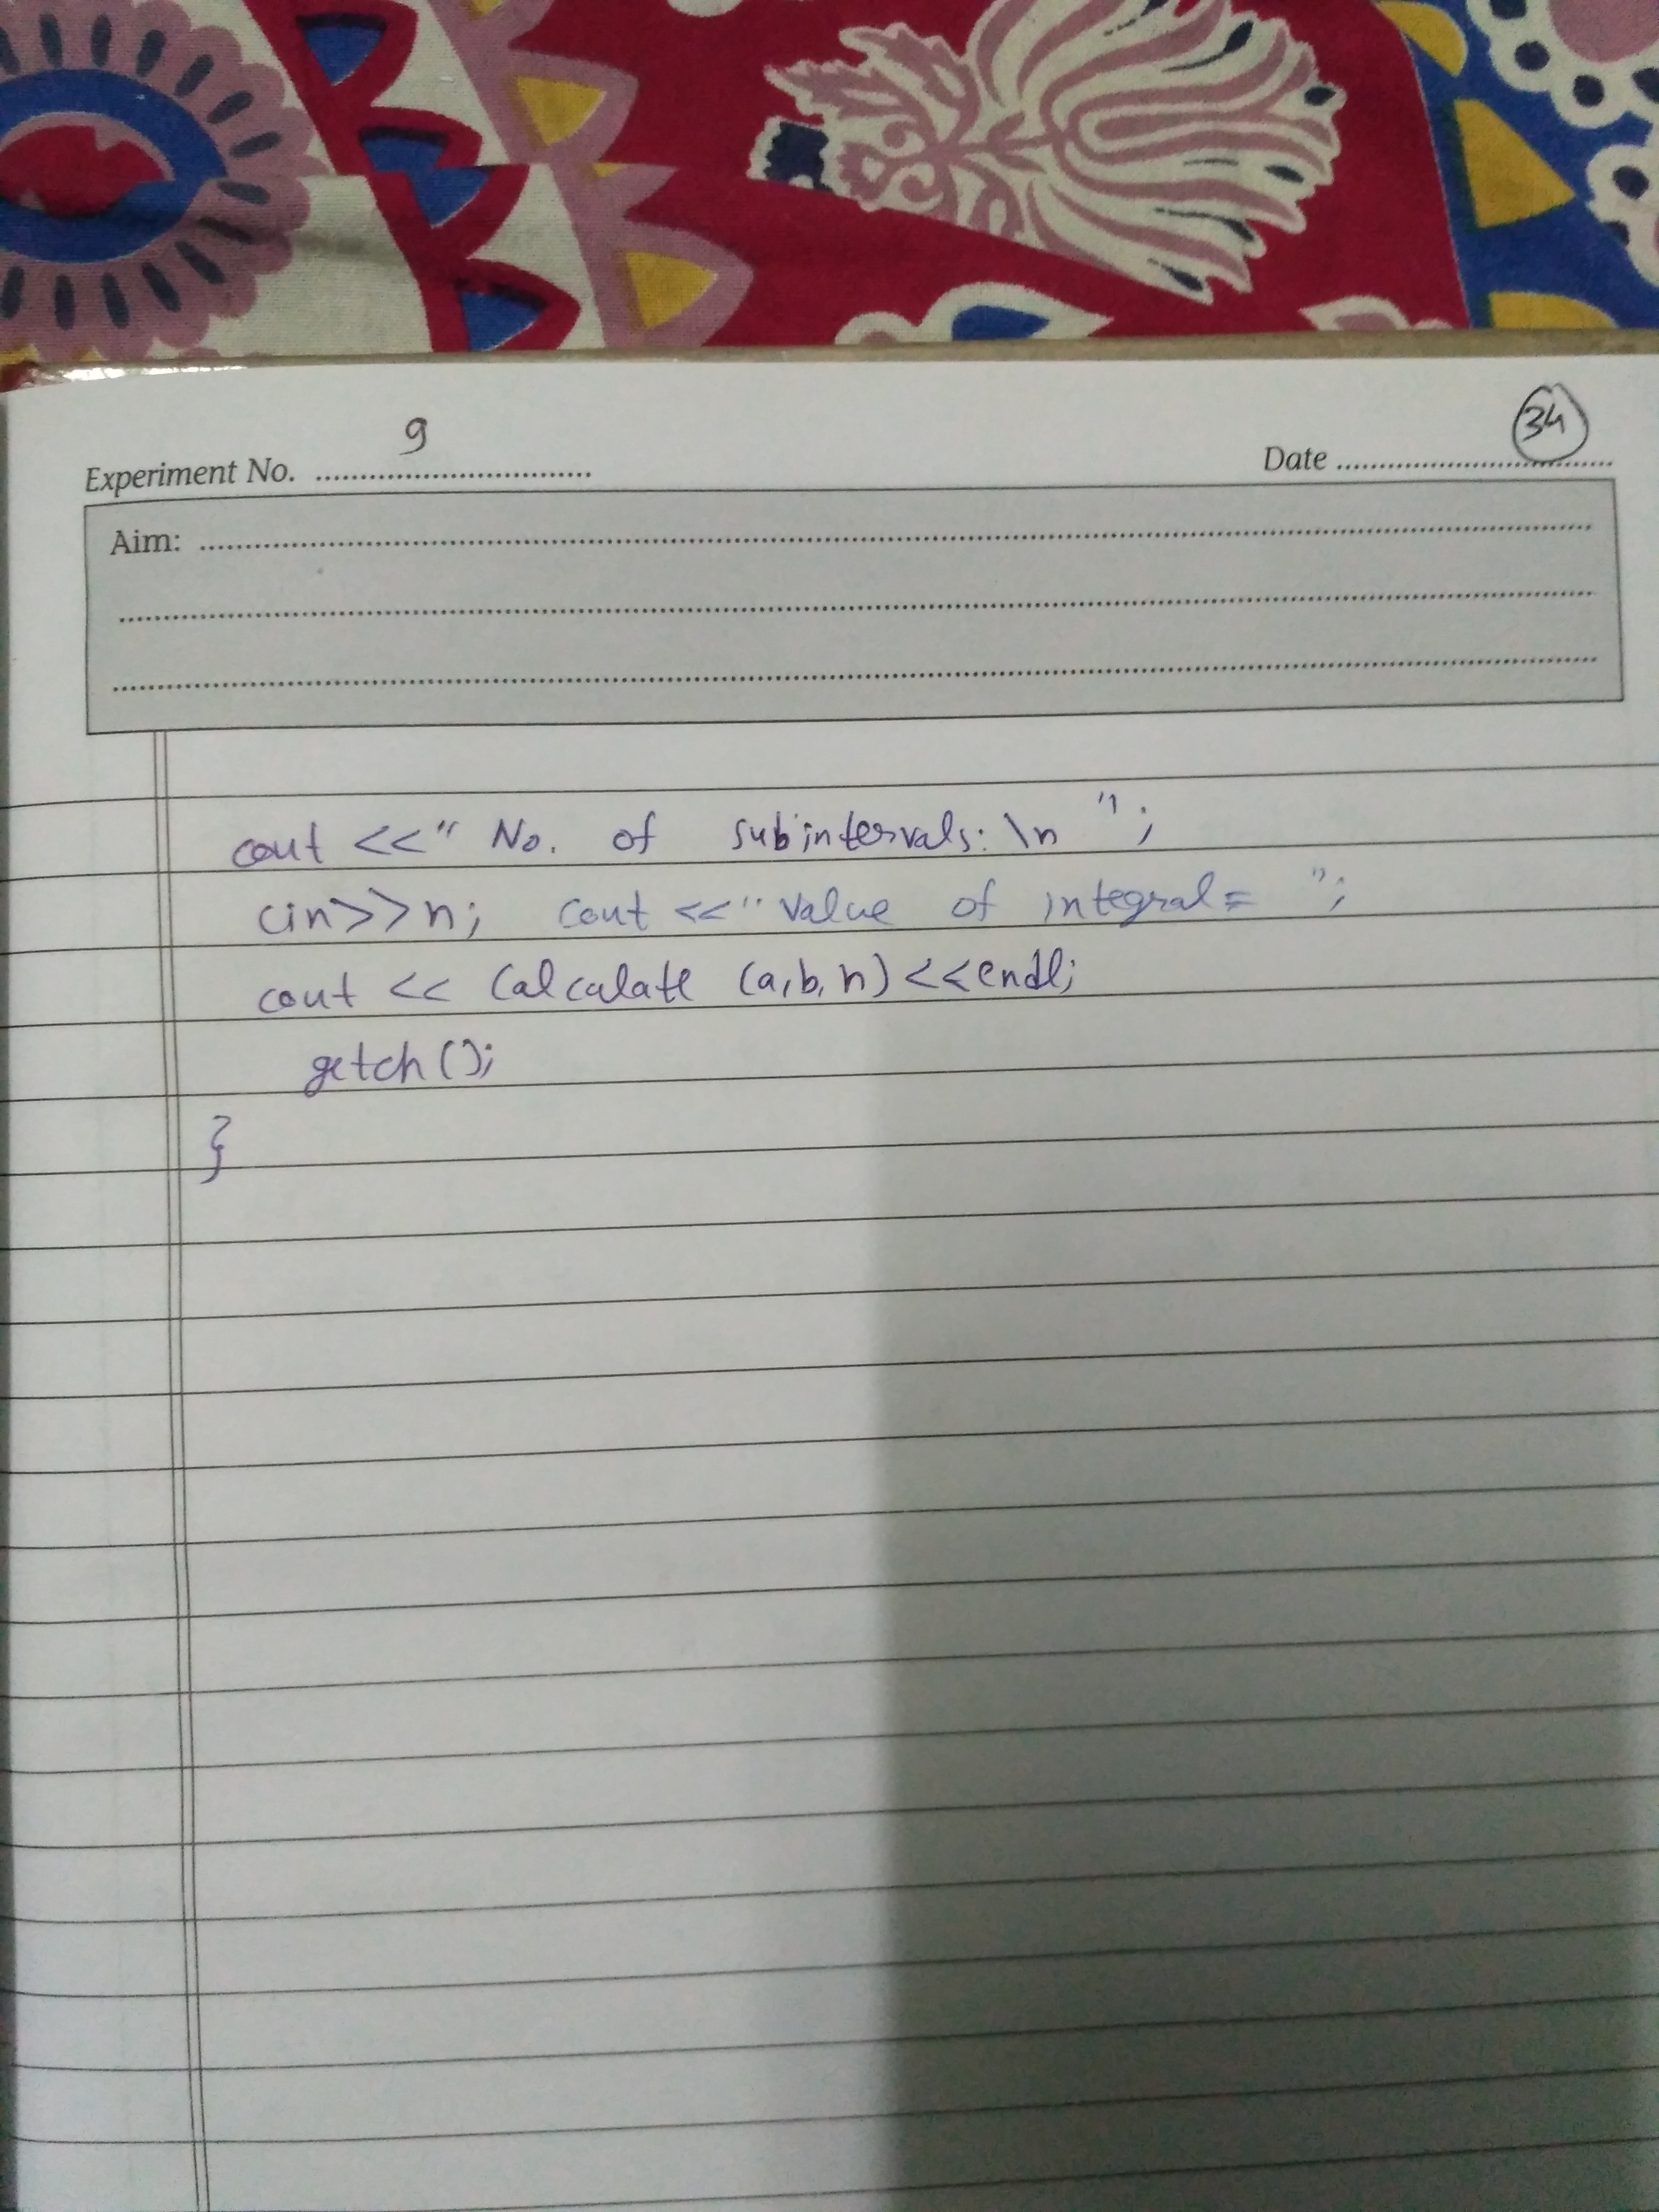 9
34
Experiment No. ..............................
Date ..............................
Aim:
cout <<" No. of subintervals: \n ";
cin>>n; cout <<" Value of integral= ";
cout << Calculate (a,b,n) <<endl;
getch();
}